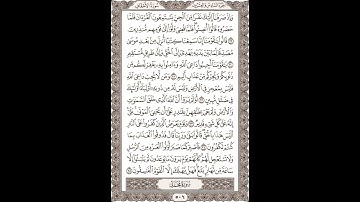 سورة الأحقاف
الجزء السادس والعشرون
وَإِذْ صَرَفْنَآ إِلَيْكَ نَفَرًا مِّنَ ٱلْجِنِّ يَسْتَمِعُونَ ٱلْقُرْءَانَ فَلَمَّا
حَضَرُوهُ قَالُوٓا۟ أَنصِتُوا۟ فَلَمَّا قُضِىَ وَلَّوْا۟ إِلَىٰ قَوْمِهِم مُّنذِرِينَ
٢٩ قَالُوا۟ يَٰقَوْمَنَآ إِنَّا سَمِعْنَا كِتَٰبًا أُنزِلَ مِنۢ بَعْدِ مُوسَىٰ
مُصَدِّقًا لِّمَا بَيْنَ يَدَيْهِ يَهْدِىٓ إِلَى ٱلْحَقِّ وَإِلَىٰ طَرِيقٍ مُّسْتَقِيمٍ
٣٠ يَٰقَوْمَنَآ أَجِيبُوا۟ دَاعِىَ ٱللَّهِ وَءَامِنُوا۟ بِهِۦ يَغْفِرْ لَكُم مِّن
ذُنُوبِكُمْ وَيُجِرْكُم مِّنْ عَذَابٍ أَلِيمٍ ٣١ وَمَن لَّا يُجِبْ دَاعِىَ ٱللَّهِ
فَلَيْسَ بِمُعْجِزٍ فِى ٱلْأَرْضِ وَلَيْسَ لَهُۥ مِن دُونِهِۦٓ أَوْلِيَآءُ أُو۟لَٰٓئِكَ
فِى ضَلَٰلٍ مُّبِينٍ ٣٢ أَوَلَمْ يَرَوْا۟ أَنَّ ٱللَّهَ ٱلَّذِى خَلَقَ ٱلسَّمَٰوَٰتِ
وَٱلْأَرْضَ وَلَمْ يَعْىَ بِخَلْقِهِنَّ بِقَٰدِرٍ عَلَىٰٓ أَن يُحْۦِىَ ٱلْمَوْتَىٰ بَلَىٰٓ
إِنَّهُۥ عَلَىٰ كُلِّ شَىْءٍ قَدِيرٌ ٣٣ وَيَوْمَ يُعْرَضُ ٱلَّذِينَ كَفَرُوا۟ عَلَى ٱلنَّارِ
أَلَيْسَ هَٰذَا بِٱلْحَقِّ قَالُوا۟ بَلَىٰ وَرَبِّنَا قَالَ فَذُوقُوا۟ ٱلْعَذَابَ بِمَا
كُنتُمْ تَكْفُرُونَ ٣٤ فَٱصْبِرْ كَمَا صَبَرَ أُو۟لُوا۟ ٱلْعَزْمِ مِنَ ٱلرُّسُلِ
وَلَا تَسْتَعْجِل لَّهُمْ كَأَنَّهُمْ يَوْمَ يَرَوْنَ مَا يُوعَدُونَ لَمْ يَلْبَثُوٓا۟ إِلَّا
سَاعَةً مِّن نَّهَارٍۭ بَلَٰغٌ فَهَلْ يُهْلَكُ إِلَّا ٱلْقَوْمُ ٱلْفَٰسِقُونَ ٣٥
سورة محمد
٥٠٦